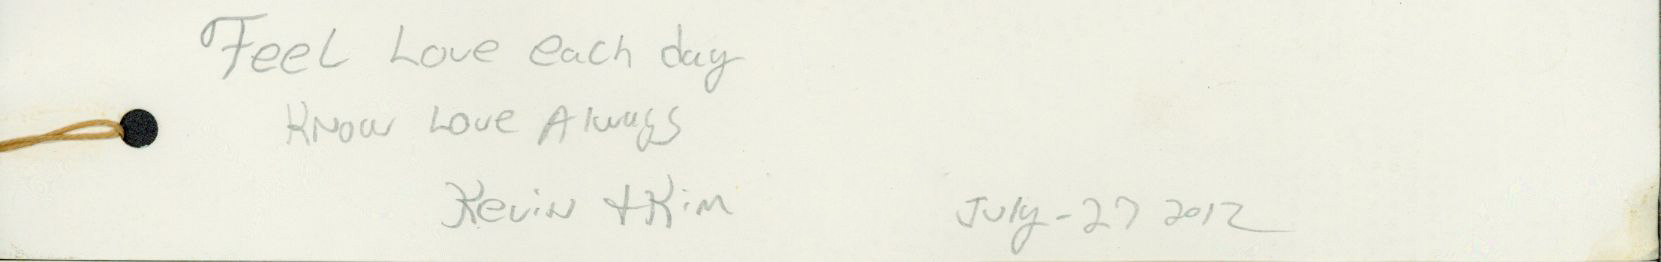 Feel Love each day
Know Love Always
Kevin + Kim
July-27 2012